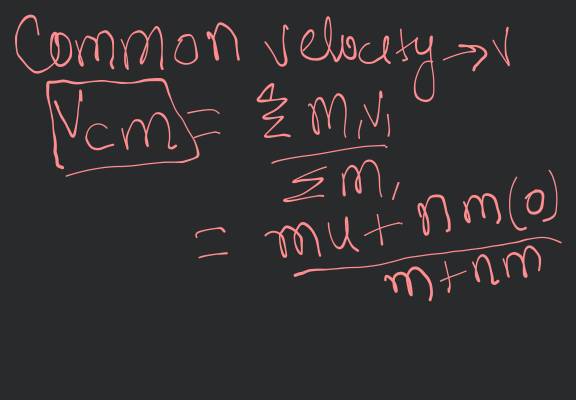 Common velocity → v
Vcm = Σ m₁v₁ / Σ m₁
= mu + nm(0) / m + nm